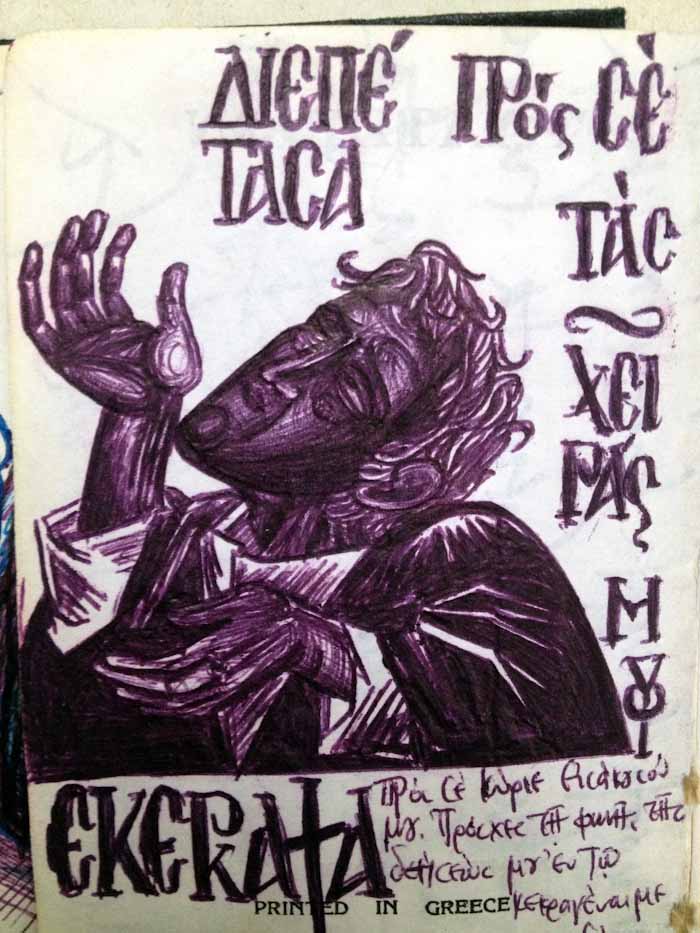 ΔΙΕΠΈ
ΤΑCΑ
ΠΡός CÈ
ΤᾺC
ΧΕΙ
ΡΆς
ΜȢ
ΕΚΕΚΡΑΞΑ
Πρὸς Cὲ Κύριε Εἰcάκουcόν
μȣ. Πρόcχες τῇ φωνῇ τῆς
δεήcεώς μȣ ἐν Τῷ
κεκραγέναι με
PRINTED IN GREECE